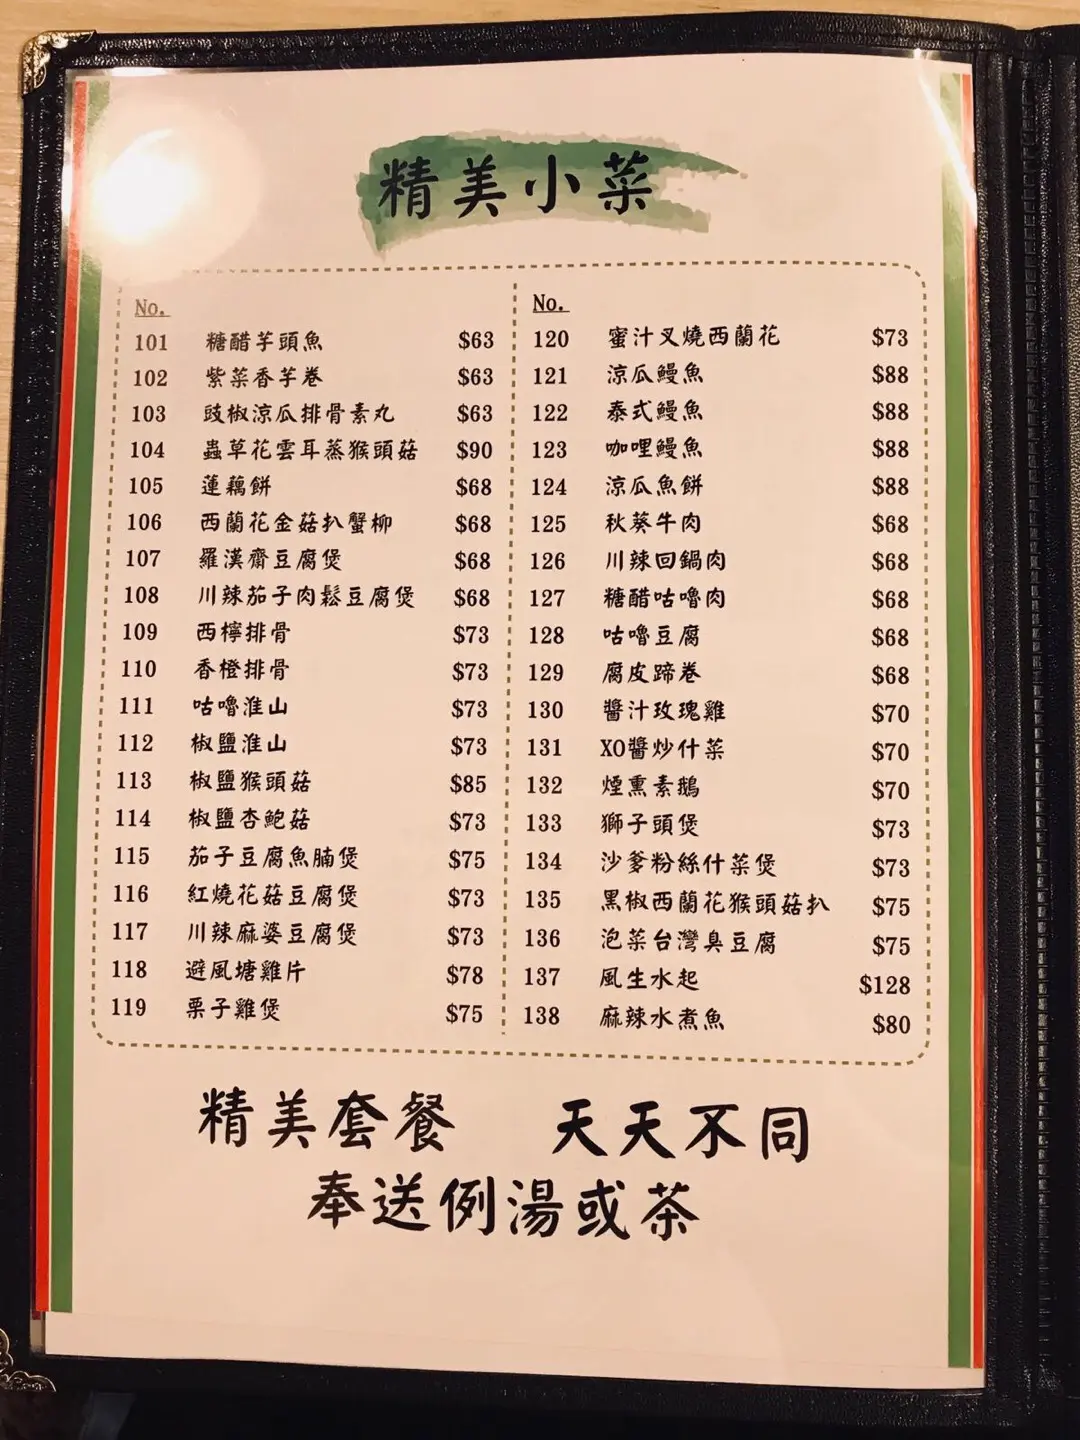 精美小菜
No.
101 糖醋芋頭魚 $63
102 紫菜香芋卷 $63
103 豉椒涼瓜排骨素丸 $63
104 蟲草花雲耳蒸猴頭菇 $90
105 蓮藕餅 $68
106 西蘭花金菇扒蟹柳 $68
107 羅漢齋豆腐煲 $68
108 川辣茄子肉鬆豆腐煲 $68
109 西檸排骨 $73
110 香橙排骨 $73
111 咕嚕淮山 $73
112 椒鹽淮山 $73
113 椒鹽猴頭菇 $85
114 椒鹽杏鮑菇 $73
115 茄子豆腐魚腩煲 $75
116 紅燒花菇豆腐煲 $73
117 川辣麻婆豆腐煲 $73
118 避風塘雞片 $78
119 栗子雞煲 $75
No.
120 蜜汁叉燒西蘭花 $73
121 涼瓜鰻魚 $88
122 泰式鰻魚 $88
123 咖哩鰻魚 $88
124 涼瓜魚餅 $88
125 秋葵牛肉 $68
126 川辣回鍋肉 $68
127 糖醋咕嚕肉 $68
128 咕嚕豆腐 $68
129 腐皮蹄卷 $68
130 醬汁玫瑰雞 $70
131 XO醬炒什菜 $70
132 煙熏素鵝 $70
133 獅子頭煲 $73
134 沙爹粉絲什菜煲 $73
135 黑椒西蘭花猴頭菇扒 $75
136 泡菜台灣臭豆腐 $75
137 風生水起 $128
138 麻辣水煮魚 $80
精美套餐 天天不同
奉送例湯或茶